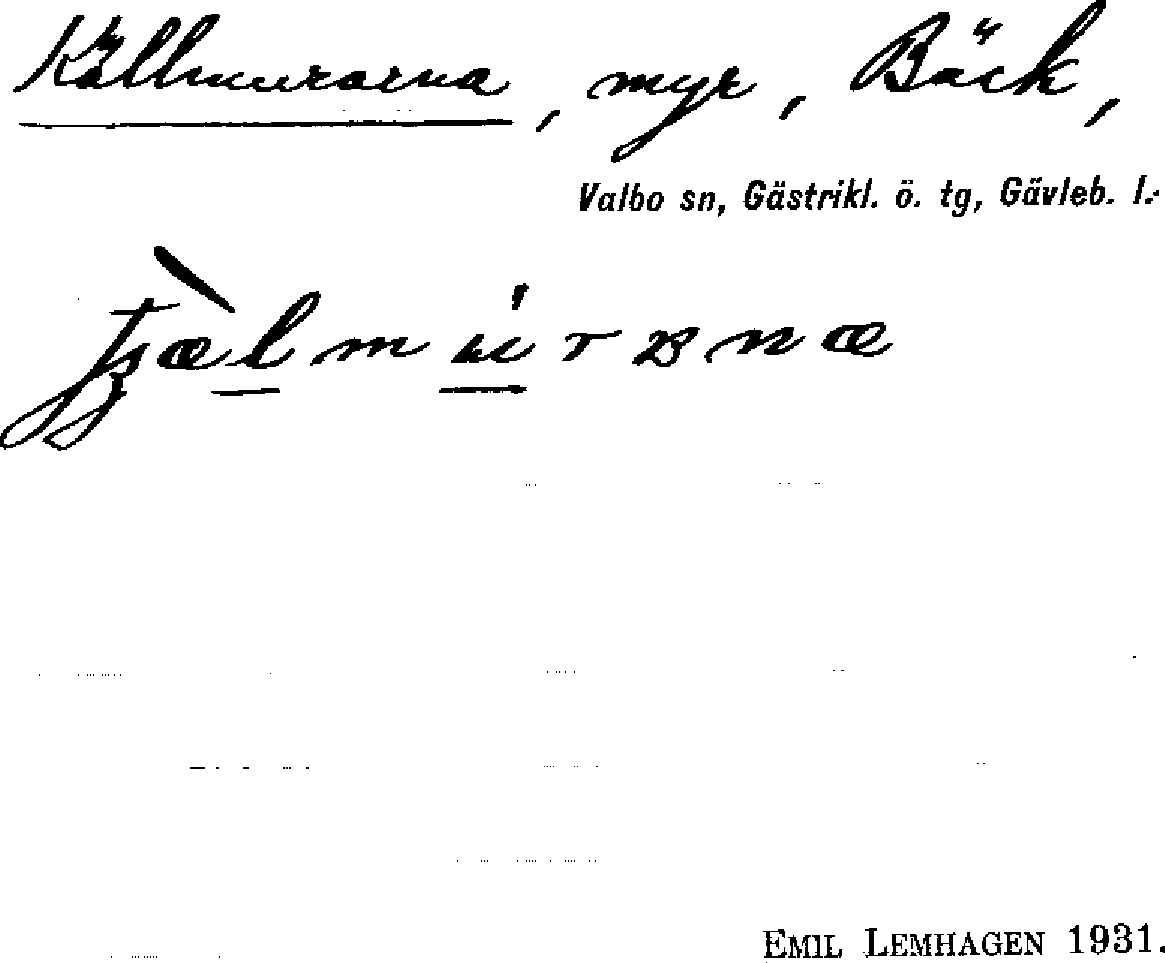 Källmurarna, myr, Bäck,
Valbo sn, Gästrikl. ö. tg, Gävleb. l.
EMIL LEMHAGEN 1931.